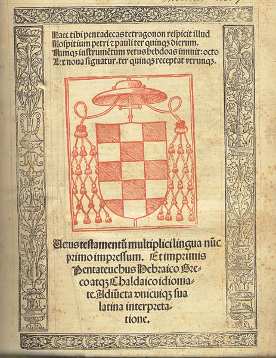 Haec tibi pentadecas tetragonon respicit illud
Hospitium petri ꝛ pauli ter quinqꝫ dierum.
Nanqꝫ instrumētum vetus hebdoas innuit: octo
Lex noua signatur. ter quinqꝫ receptat vtrunqꝫ.
Uetus testamentū multiplici lingua nūc
primo impressum. Et imprimis
Pentateuchus Hebraico Gre
co atqꝫ Chaldaico idioma
te. Adiūcta vnicuiqꝫ sua
latina interpreta
tione.